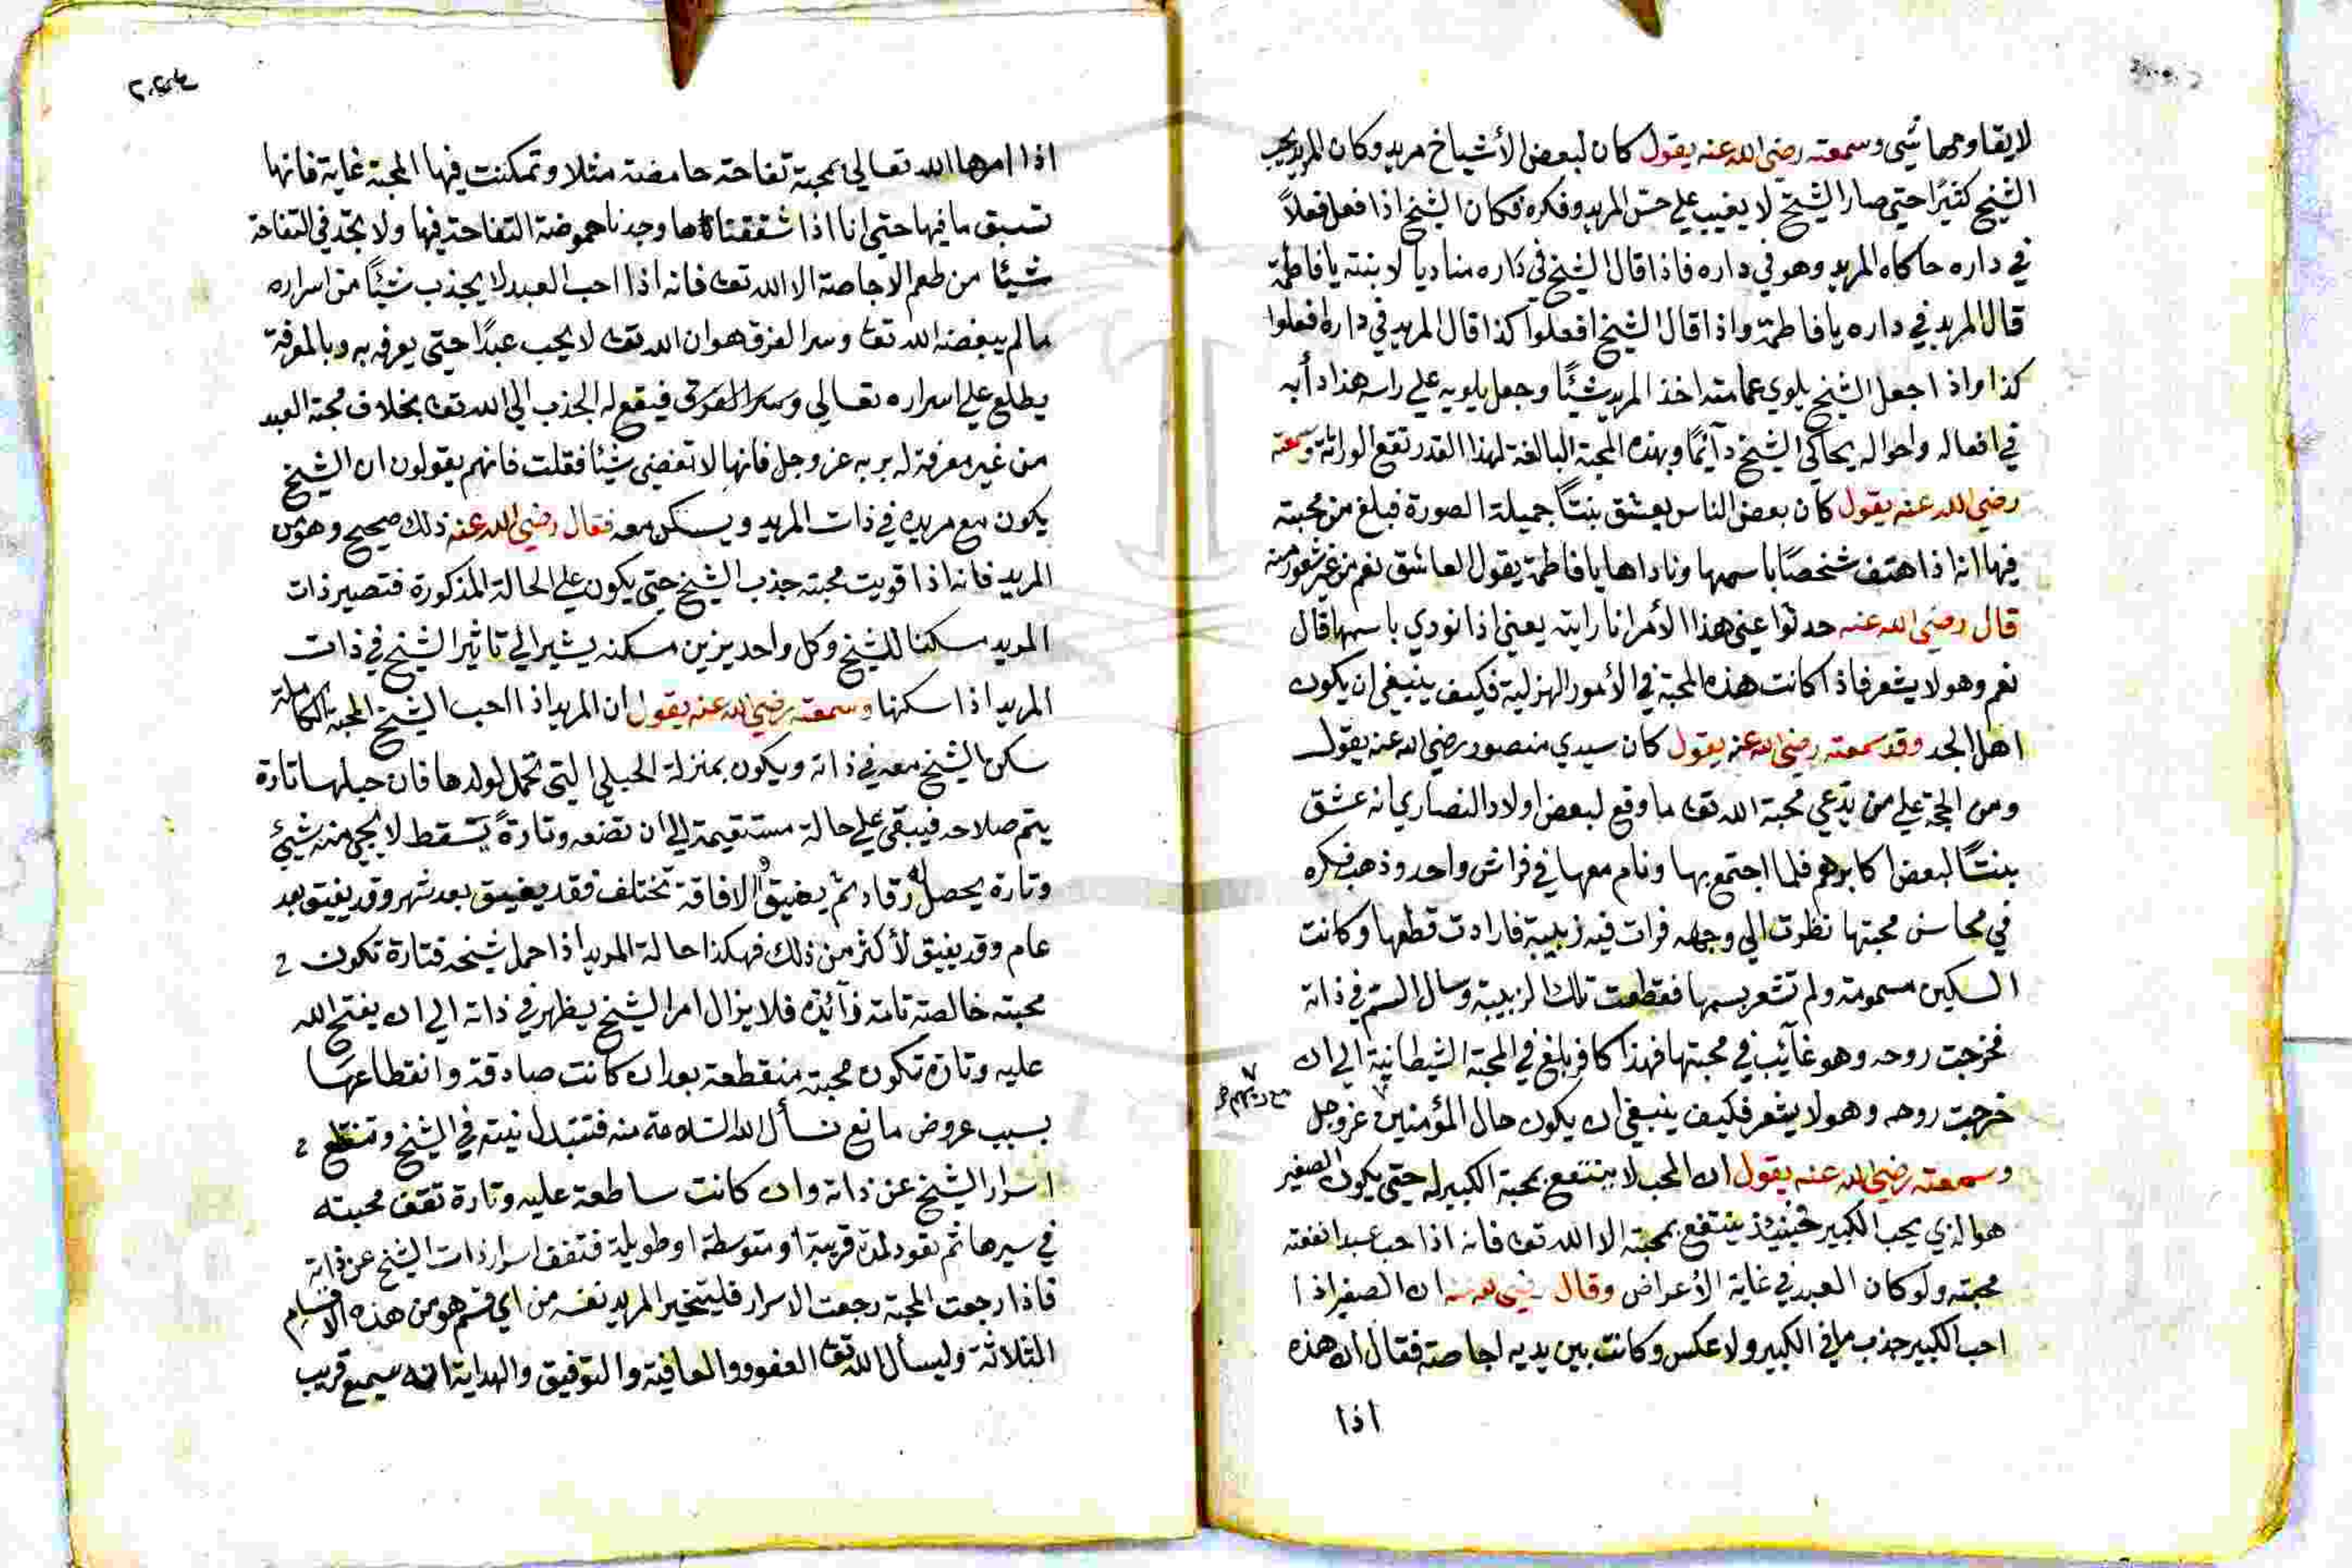 لا يقاومها شيء وسمعته رضي الله عنه يقول كان لبعض الأشياخ مريد وكان المريد يحب
الشيخ كثيرًا حتى صار الشيخ لا يغيب علي حس المريد وفكره فكان الشيخ اذا فعل فعلاً
في داره حاكاه المريد وهو في داره فاذا قال الشيخ في داره مناديا لابنته يا فاطمة
قال المريد في داره يا فاطمة واذا قال الشيخ افعلوا كذا قال المريد في داره افعلوا
كذا واذا جعل الشيخ يلوي عمامته اخذ المريد شيئًا وجعل يلويه علي راسه هذا دأبه
في افعاله واحواله يحاكي الشيخ دآئمًا وبهذه المحبة البالغة لهذا القدر تقع الوراثة وسمعته
رضي الله عنه يقول كان بعض الناس يعشق بنتًا جميلة الصورة فبلغ من محبته
فيها انه اذا هتف شخصًا باسمها وناداها يا فاطمة يقول العاشق نعم من غير شعور منه
قال رضي الله عنه حدثوا عني هذا الأمر انا رايته يعني اذا نودي باسمها قال
نعم وهو لا يشعر فاذا كانت هذه المحبة في الأمور الهزلية فكيف ينبغي ان يكون
اهل الجد وقد سمعته رضي الله عنه يقول كان سيدي منصور رضي الله عنه يقول
ومن الحجة علي من يدّعي محبة الله تعا ما وقع لبعض اولاد النصاري انه عشق
بنتًا لبعض اكابرهم فلما اجتمع بها ونام معها في فراش واحد وذهب فكره
في محاسن محبتها نظرت الي وجهه فرات فيه زبيبة فارادت قطعها وكانت
السكين مسمومة ولم تشعر بسمها فقطعت تلك الزبيبة وسال السم في ذاته
فخرجت روحه وهو غآئب في محبتها فهذا كافر بلغ في المحبة الشيطانية الي ان
خرجت روحه وهو لا يشعر فكيف ينبغي ان يكون حال المؤمنين عز وجل
مع ربهم
وسمعته رضي الله عنه يقول ان المحب لا ينتفع بمحبة الكبير له حتى يكون الصغير
هو الذي يحب الكبير فحينئذ ينتفع بمحبته الا الله تعا فانه اذا احب عبدا نفعته
محبته ولو كان العبد في غاية الأعراض وقال رضي الله عنه ان الصغير اذا
احب الكبير جذب ما في الكبير ولا عكس وكانت بين يديه اجاصة فقال ان هذه
اذا
اذا امرها الله تعالي بمحبة تفاحة حامضة مثلا وتمكنت فيها المحبة غاية فانها
تسبق ما فيها حتى انا اذا شققناها وجدنا حموضة التفاحة فيها ولا تجد في التفاحة
شيئا من طعم الاجاصة الا الله تعا فانه اذا احب العبد لا يجذب شيئًا من اسراره
ما لم يبغضه الله تعا وسر الفرق هو ان الله تعا لا يحب عبدًا حتى يعرفه به وبالمعرفة
يطلع علي اسراره تعالي وسر الفرق فيقع له الجذب الي الله تعا بخلاف محبة العبد
من غير معرفة له بربه عز وجل فانها لا تقضي شيئا فقلت فانهم يقولون ان الشيخ
يكون مع مريده في ذات المريد ويسكن معه فقال رضي الله عنه ذلك صحيح وهو من
المريد فانه اذا قويت محبته جذب الشيخ حتى يكون علي الحالة المذكورة فتصير ذات
المريد سكنا للشيخ وكل واحد يزين مسكنه يشير الي تاثير الشيخ في ذات
المريد اذا سكنها وسمعته رضي الله عنه يقول ان المريد اذا احب الشيخ المحبة الكاملة
سكن الشيخ معه في ذاته ويكون بمنزلة الحبلي التي تحمل لولدها فان حبلها تارة
يتم صلاحه فيبقي علي حالة مستقيمة الي ان تضعه وتارةً يسقط لا يجي منه شيئ
وتارة يحصل له رقاد ثم يفيق والافاقة تختلف فقد يفيق بعد شهر وقد يفيق بعد
عام وقد يفيق لأكثر من ذلك فهكذا حالة المريد اذا حمل شيخه فتارة تكون
محبته خالصة تامة فآئذة فلا يزال امر الشيخ يظهر في ذاته الي ان يفتح الله
عليه وتارة تكون محبته منقطعة بعد ان كانت صادقة وانقطاعها
بسبب عروض مانع نسأل الله السلامة منه فتتبدل نيته في الشيخ وتنقطع
اسرار الشيخ عن ذاته وان كانت ساطعة عليه وتارة تقف محبته
في سيرها ثم تعود لمدة قريبة او متوسطة او طويلة فتقف اسرار ذات الشيخ عن ذاته
فاذا رجعت المحبة رجعت الاسرار فليتخير المريد نفسه من اي قسم هو من هذه الاقسام
الثلاثة وليسأل الله تعا العفو والعافية والتوفيق والهداية انه سميع قريب